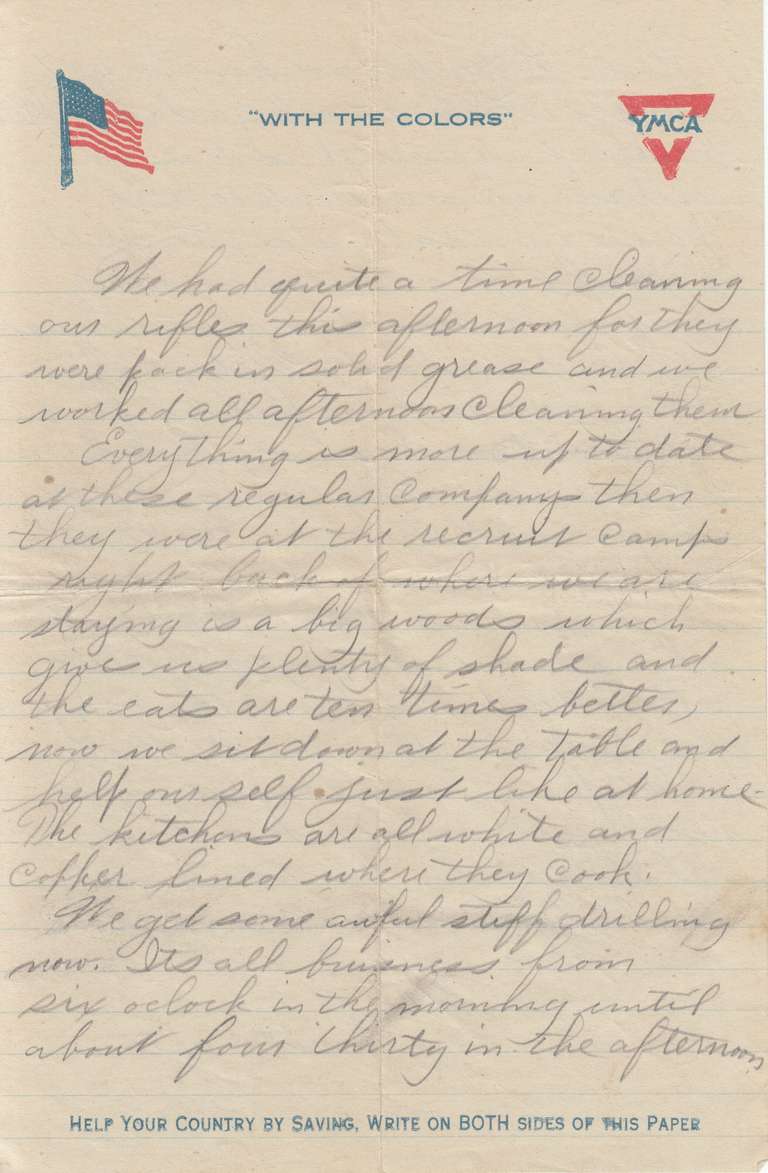 "WITH THE COLORS"
YMCA
We had quite a time cleaning
our rifles this afternoon for they
were pack in solid grease and we
worked all afternoon cleaning them
Everything is more up to date
at these regular Companys then
they were at the recruit camps
right back of where we are
staying is a big woods which
gives us plenty of shade and
the eats are ten times better,
now we sit down at the table and
help our self just like at home.
The kitchens are all white and
copper lined where they cook.
We get some awful stiff drilling
now. Its all buisness from
six oclock in the morning until
about four thirty in the afternoon
HELP YOUR COUNTRY BY SAVING, WRITE ON BOTH SIDES OF THIS PAPER